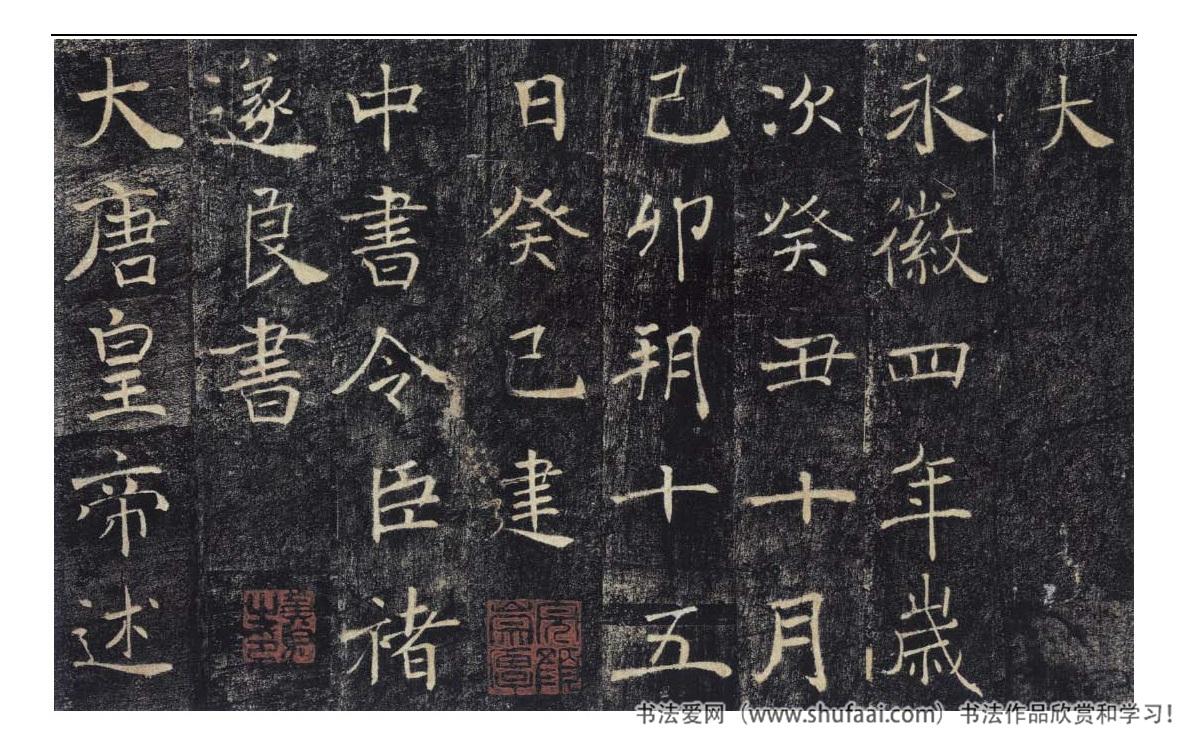 大
永徽四年歲
次癸丑十月
己卯朔十五
日癸巳建
中書令臣褚
遂良書
大唐皇帝述
书法爱网（www.shufaai.com）书法作品欣赏和学习！